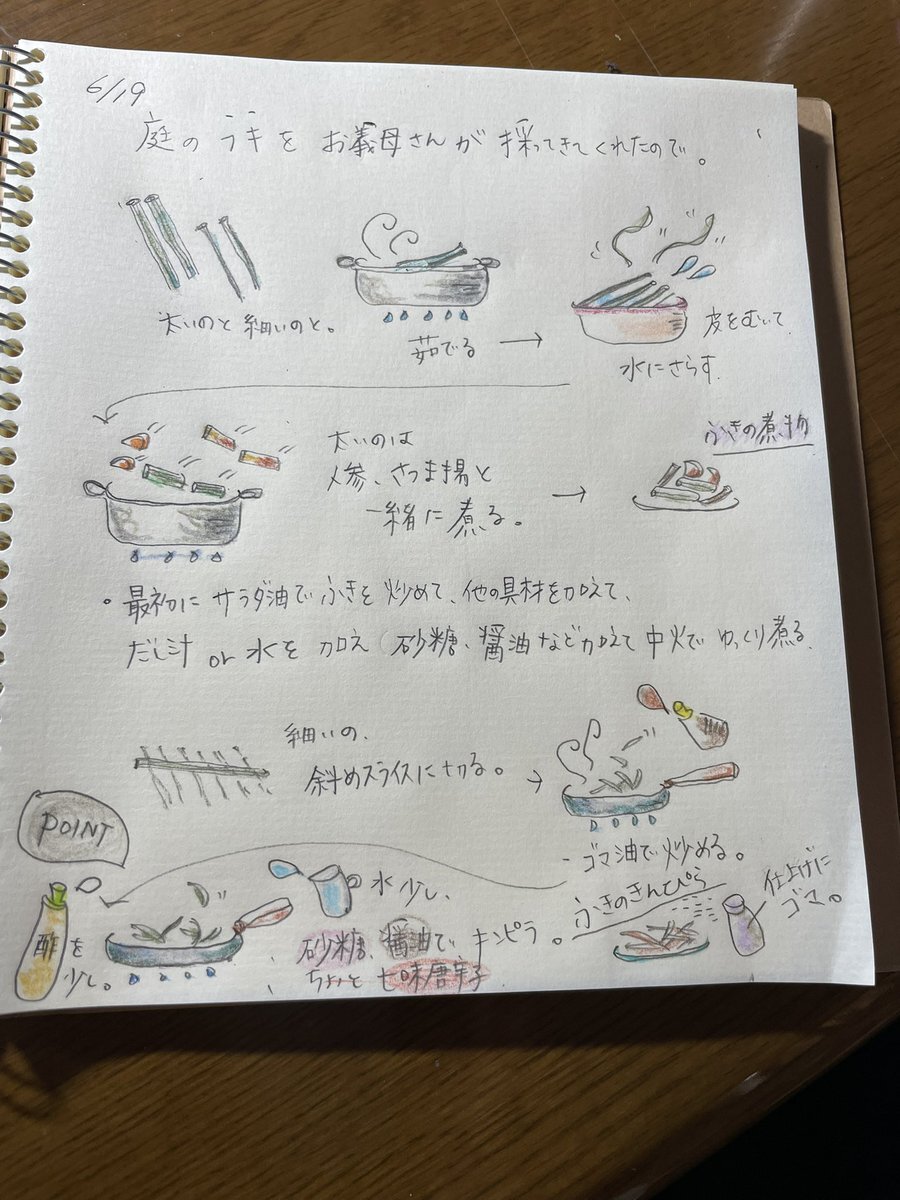 6/19
庭のフキをお義母さんが採ってきてくれたので。
太いのと細いのと。
茹でる →
皮をむいて、
水にさらす
太いのは
人参、さつま揚と
一緒に煮る。
→
ふきの煮物
・最初にサラダ油でふきを炒めて、他の具材を加えて、
だし汁 or 水を加え(砂糖、醤油など加えて中火でゆっくり煮る
細いの、
斜めスライスに切る。→
ゴマ油で炒める。
POINT
酢を
少し。
水少し、
砂糖、醤油でキンピラ。
ちょっと七味唐辛子
ふきのきんぴら
仕上げに
ゴマ。